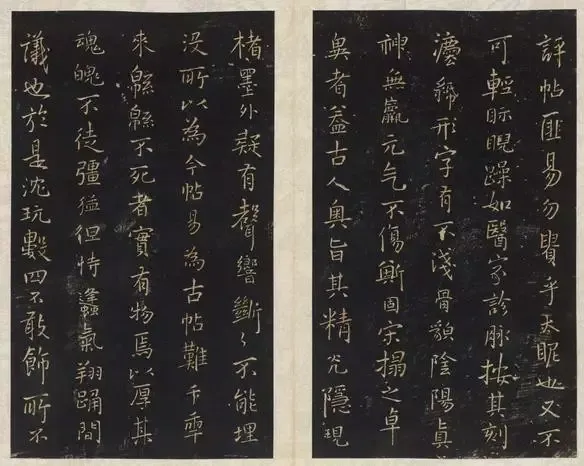 評帖匪易勿乎昵也又不
可輕眎睨躁如醫家診脉按其刻
形字有不淺骨陰陽真
神無羸元气不傷斯固宋搨之卓
異者蓋古人奧旨其精光隱現
楮墨外疑有聲響斷〻不能埋
没所以為今帖易為古帖難千季
來緜緜不死者實有物焉以厚其
魂魄不徒彊猛但恃蠭氣翔踊間
議也於是沈玩數四不敢飾所不